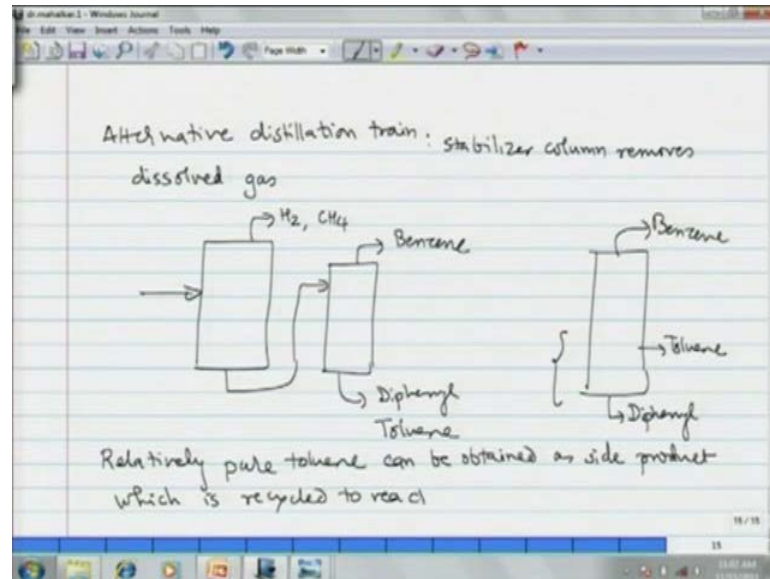 dr.mahalkar.1 - Windows Journal
File Edit View Insert Actions Tools Help
Page Width
Alternative distillation train: stabilizer column removes
dissolved gas
H2, CH4
Benzene
Benzene
Toluene
Diphenyl
Toluene
Diphenyl
Relatively pure toluene can be obtained as side product
which is recycled to react
15 / 15
15